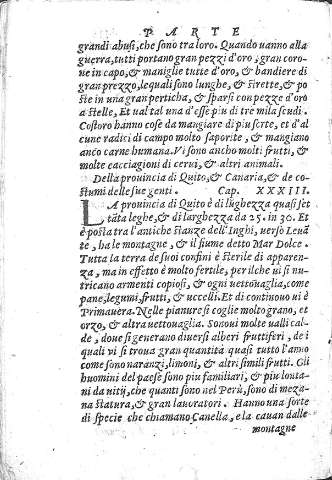 PARTE
grandi abusi, che sono tra loro. Quando uanno alla
guerra, tutti portano gran pezzi d'oro, gran coro-
ne in capo, & maniglie tutte d'oro, & bandiere di
gran prezzo, le quali sono lunghe, & strette, & po
ste in una gran perticha, & sparsi con pezze d'oro
a stelle, Et ual tal una d'esse piu di tre mila scudi.
Costoro hanno cose da mangiare di piu sorte, et d'al
cune radici di campo molto saporite, & mangiano
anco carne humana. Vi sono ancho molti frutti, &
molte cacciagioni di cerui, & altri animali.
Della prouincia di Quito, & Canaria, & de co-
stumi delle sue genti. Cap. XXXIII.
LA prouincia di Quito è di lũghezza quasi set
tãta leghe, & di larghezza da 25. in 30. Et
è posta tra l'antiche stanze dell'Inghi, uerso Leuã
te, ha le montagne, & il fiume detto Mar Dolce.
Tutta la terra de suoi confini è sterile di apparen-
za, ma in effetto è molto fertile, perilche ui si nu-
tricano armenti copiosi, & ogni uettouaglia, come
pane, legumi, frutti, & uccelli. Et di continouo ui è
Primauera. Nelle pianure si coglie molto grano, et
orzo, & altra uettouaglia. Sonoui molte ualli cal-
de, doue si generano diuersi alberi fruttiferi, de i
quali vi si troua gran quantità quasi tutto l'anno
come sono naranzi, limoni, & altri simili frutti. Gli
huomini del paese sono piu familiari, & piu lonta-
ni da uitij, che quanti sono nel Perù, sono di meza-
na statura, & gran lauoratori. Hanno una sorte
di specie che chiamano Canella, e la cauan dalle
montagne